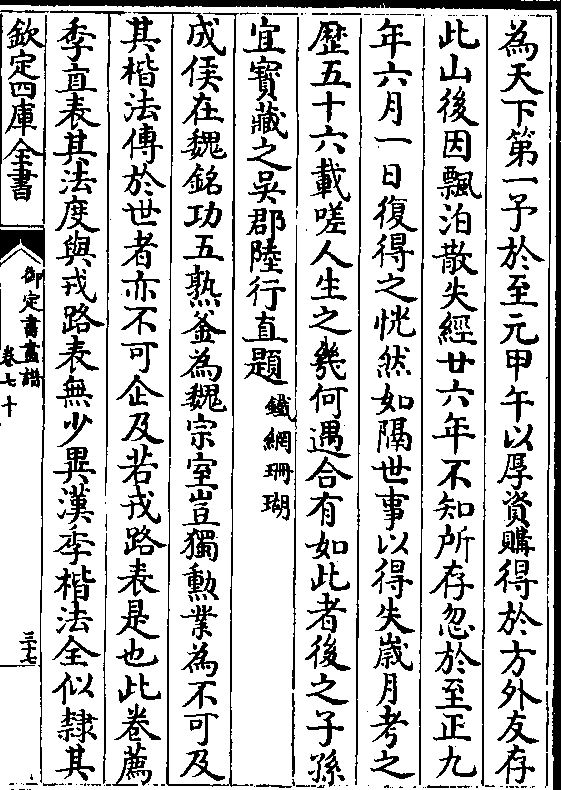 為天下第一予於至元甲午以厚資購得於方外友存
此山後因飄泊散失經廿六年不知所存忽於至正九
年六月一日復得之恍然如隔世事以得失歲月考之
歷五十六載嗟人生之幾何遇合有如此者後之子孫
宜寳藏之吳郡陸行直題鐵網珊瑚
成侯在魏銘功五熟釜為魏宗室豈獨勲業為不可及
其楷法傳於世者亦不可企及若戎路表是也此卷薦
季直表其法度與戎路表無少異漢季楷法全似隸其
欽定四庫全書
御定書畫譜
卷七十
三十七